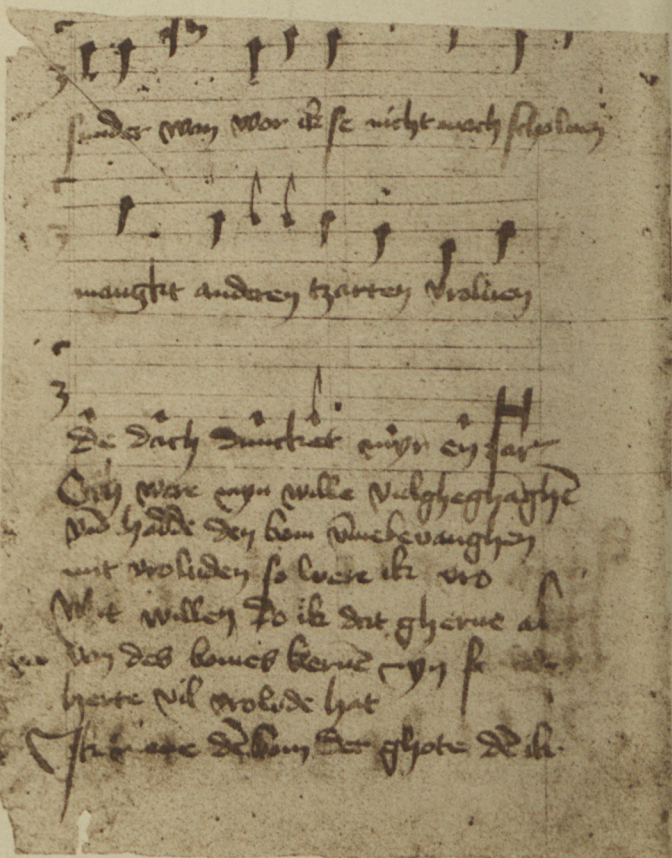 sunder wan wor ik se nicht mach scholwen
mangkt anderen tzarten vrolwen
De dach duncket myr eyn iar
Och were myn wille vulgheghaghē
vn̄ hadde den bom vmebevanghen
mit vrolyden so were ik vro
Mit willen do ik dat gherne al
van des bomes kernē myn
herte vil vrolyde hat
dē bom der ghote dē ik